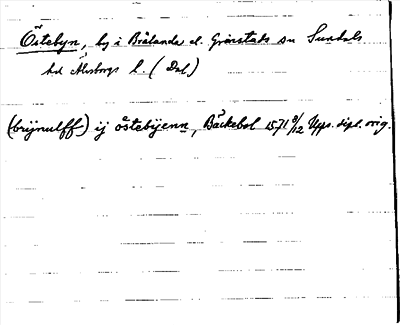 Östebyn, by i Brålanda el. Grinstads sn Sundals
hd Älvsborgs l. (Dal)
(brijnulff) ij östebijenn, Bäckebol 1571 9/12 Upps. dipl. orig.